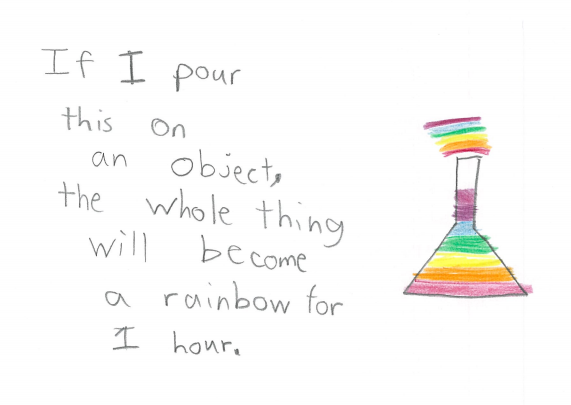 If I pour
this on
an object,
the whole thing
will become
a rainbow for
1 hour.